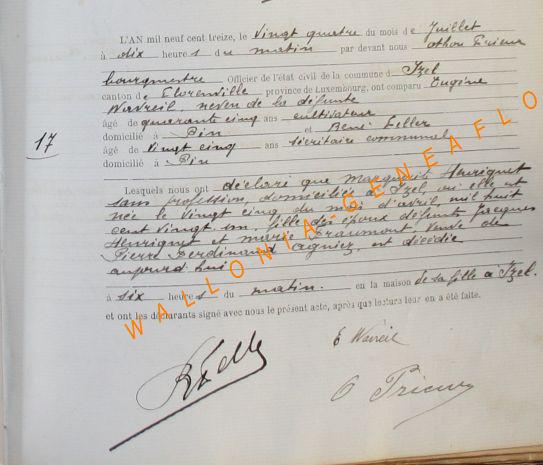 L'AN mil neuf cent treize, le Vingt quatre du mois de Juillet
à dix heures du matin par devant nous Othon Prieur
bourgmestre Officier de l'état civil de la commune d' Izel
canton de Florenville province de Luxembourg, ont comparu Eugène
Wavreil, neveu de la défunte
âgé de quarante cinq ans cultivateur
17
domicilié à Pin et René Feller
âgé de Vingt cinq ans secrétaire communal
domicilié à Pin
Lesquels nous ont déclaré que Marguerite Henriquet
sans profession, domiciliée à Izel, où elle est
née le vingt cinq du mois d'avril, mil huit
cent vingt un, fille des époux défunts Jacques
Henriquet et Marie Fraumont, veuve de
Pierre Ferdinand Agniez, est décédée
aujourd'hui
à six heures du matin. en la maison de sa fille à Izel.
et ont les déclarants signé avec nous le présent acte, après que lecture leur en a été faite.
E Wavreil
RFelle
O Prieur
WALLONIA-GENEAFLO